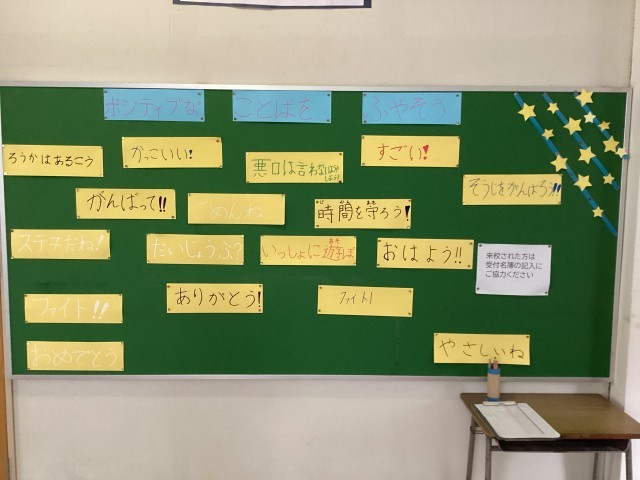 ポジティブな ことばを ふやそう
ろうかはあるこう
かっこいい!
悪口は言わない
すごい!
そうじをがんばろう!!
がんばって!!
ごめんね
時間を守ろう!
ステキだね!
だいじょうぶ?
いっしょに遊ぼ
おはよう!!
来校された方は
受付名簿の記入に
ご協力ください
ファイト!!
ありがとう!
ファイト!
おめでとう
やさしいね